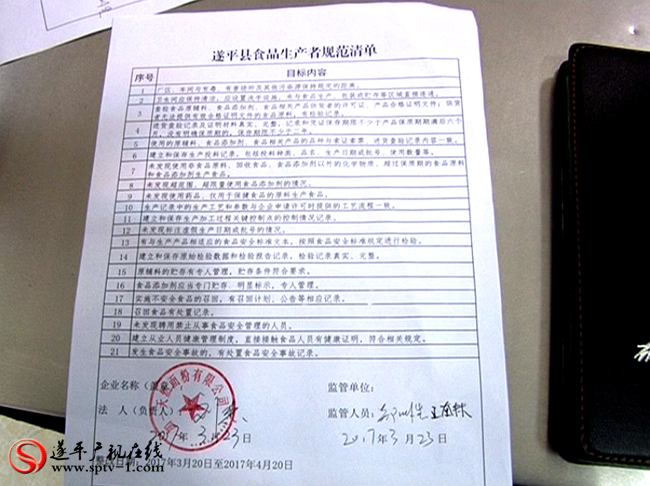 遂平县食品生产者规范清单
序号 目标内容
1 厂区、车间与有毒、有害场所及其他污染源保持规定的距离。
2 卫生间应保持清洁,应设置洗手设施,未与食品生产、包装或贮存等区域直接连通。
3 查验食品原辅料、食品添加剂、食品相关产品供货者的许可证、产品合格证明文件;供货
者无法提供有效合格证明文件的食品原料,有检验记录。
4 进货查验记录及证明材料真实、完整,记录和凭证保存期限不少于产品保质期期满后六个
月,没有明确保质期的,保存期限不少于二年。
5 使用的原辅料、食品添加剂、食品相关产品的品种与索证索票、进货查验记录内容一致。
6 建立和保存生产投料记录,包括投料种类、品名、生产日期或批号、使用数量等。
7 未发现使用非食品原料、回收食品、食品添加剂以外的化学物质、超过保质期的食品原料
和食品添加剂生产食品。
8 未发现超范围、超限量使用食品添加剂的情况。
9 未发现使用药品、仅用于保健食品的原料生产食品。
10 生产记录中的生产工艺和参数与企业申请许可时提供的工艺流程一致。
11 建立和保存生产加工过程关键控制点的控制情况记录。
12 未发现标注虚假生产日期或批号的情况。
13 有与生产产品相适应的食品安全标准文本,按照食品安全标准规定进行检验。
14 建立和保存原始检验数据和检验报告记录,检验记录真实、完整。
15 原辅料的贮存有专人管理,贮存条件符合要求。
16 食品添加剂应当专门贮存、明显标示,专人管理。
17 实施不安全食品的召回,有召回计划、公告等相应记录。
18 召回食品有处置记录。
19 未发现聘用禁止从事食品安全管理的人员。
20 建立从业人员健康管理制度,直接接触食品人员有健康证明,符合相关规定。
21 发生食品安全事故的,有处置食品安全事故记录。
企业名称(盖章) 监管单位:
面粉有限公司
法 人(负责人): 监管人员:
2017年3月23日 2017年3月23日
整改日期:2017年3月20日至2017年4月20日
遂平广视在线
www.sptv-1.com